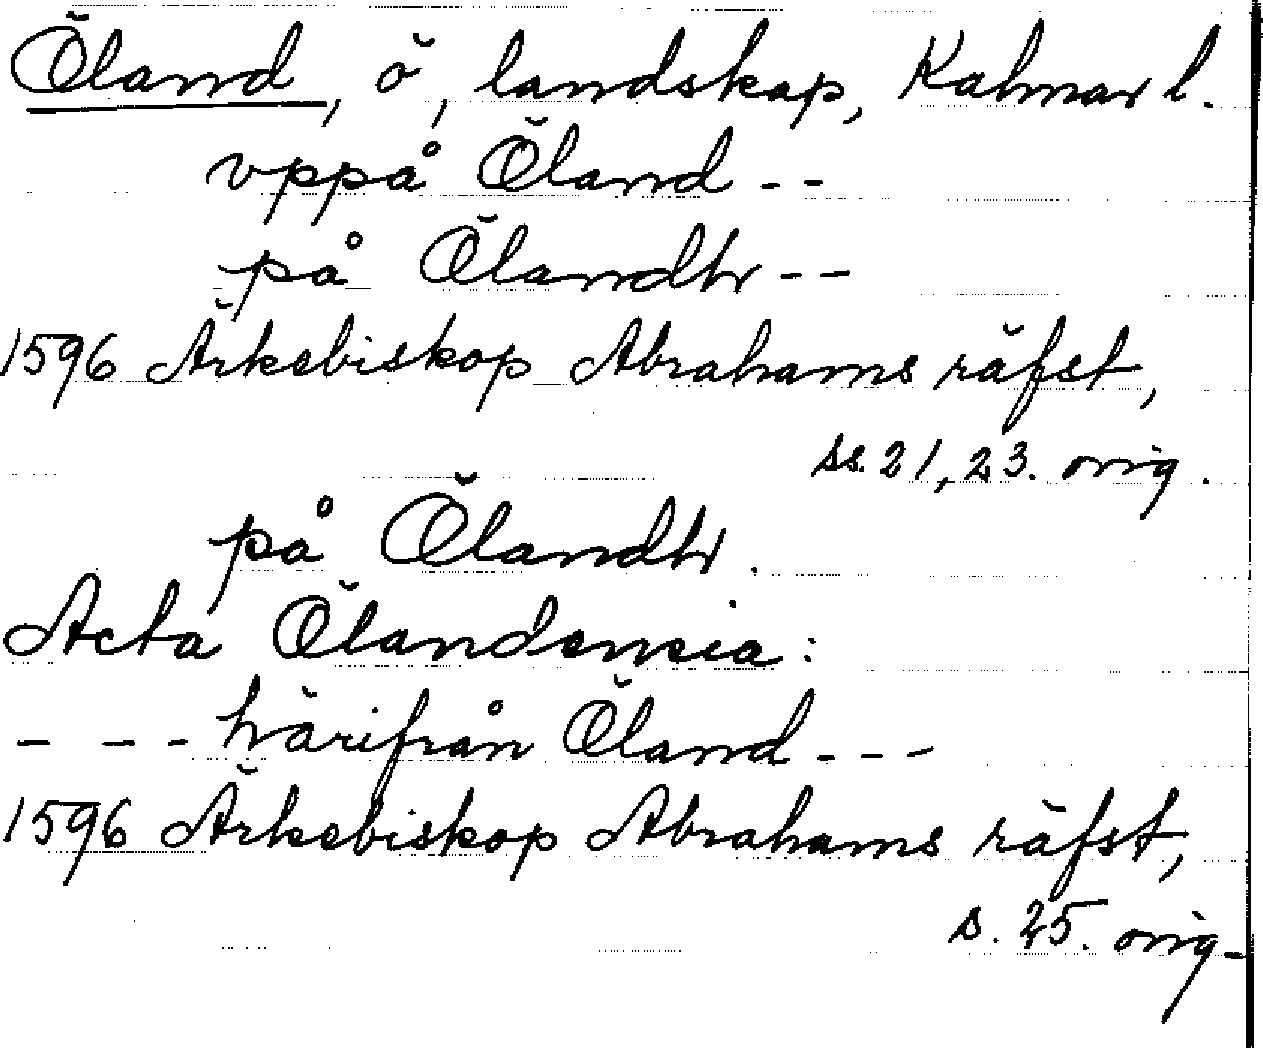 Öland, ö, landskap, Kalmar l.
vppå Öland - -
på Ölandh - -
1596 Ärkebiskop Abrahams räfst,
ss. 21, 23. orig.
på Ölandh.
Acta Ölandensia:
- - - härifrån Öland - - -
1596 Ärkebiskop Abrahams räfst,
s. 25. orig.